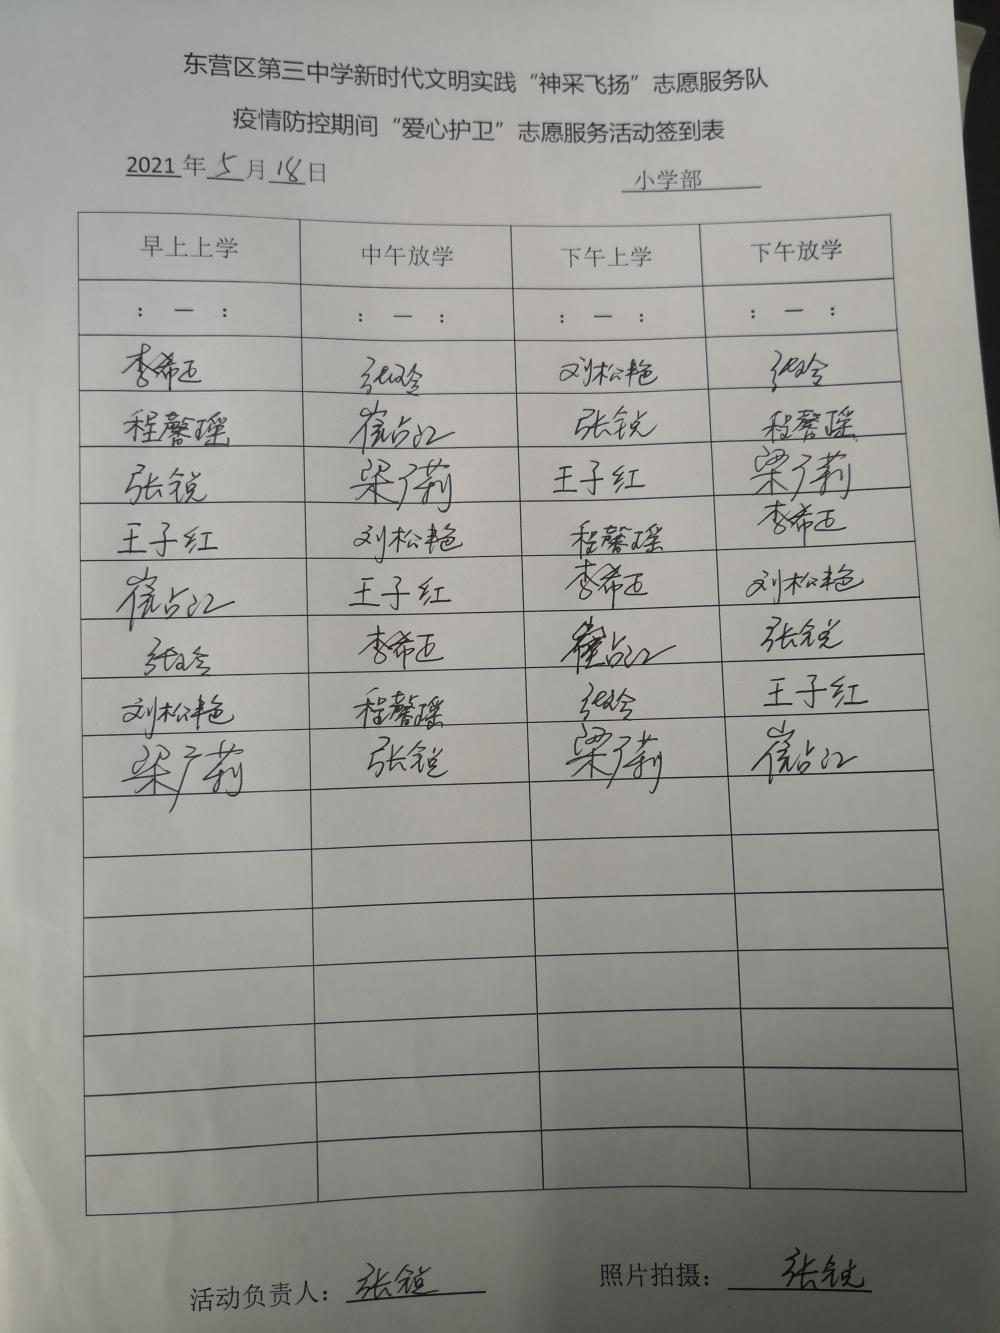 东营区第三中学新时代文明实践“神采飞扬”志愿服务队
疫情防控期间“爱心护卫”志愿服务活动签到表
2021年5月18日 小学部
早上上学 中午放学 下午上学 下午放学
: — : : — : : — : : — :
李希迎 张玲 刘松艳 张玲
程馨瑶 崔占江 张锐 程馨瑶
张锐 梁广莉 王子红 梁广莉
王子红 刘松艳 程馨瑶 李希迎
崔占江 王子红 李希迎 刘松艳
张玲 李希迎 崔占江 张锐
刘松艳 程馨瑶 张玲 王子红
梁广莉 张锐 梁广莉 崔占江
活动负责人：张锐 照片拍摄：张锐